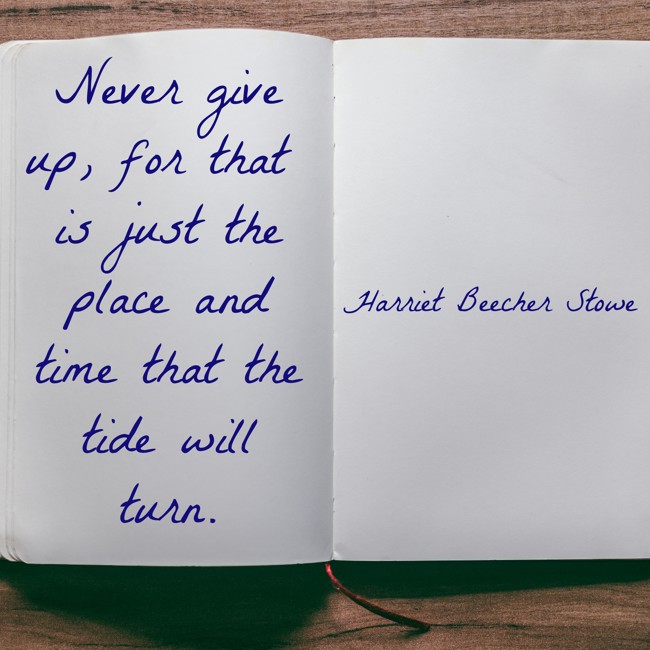 Never give
up, for that
is just the
place and
time that the
tide will
turn.
Harriet Beecher Stowe